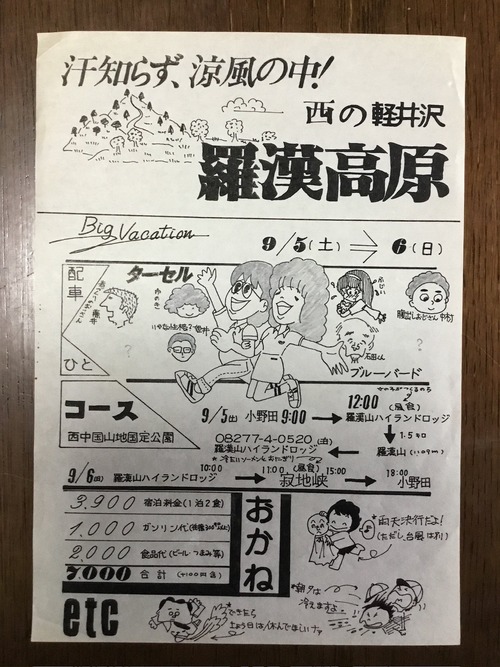 汗知らず、涼風の中!
西の軽井沢
羅漢高原
Big Vacation
9/5(土)⇒6(日)
配車
ひと
ターセル
ブルーバード
?
?
石田くん
コース
西中国山地国定公園
9/5(土) 小野田 9:00 → 12:00 (昼食) 羅漢山ハイランドロッジ
↓ 1.5キロ
羅漢山(1109m)
08277-4-0520(泊)
羅漢山ハイランドロッジ ←
9/6(日) 羅漢山ハイランドロッジ 10:00 → 11:00 (昼食) 15:00 寂地峡 → 18:00 小野田
おかね
3.900 宿泊料金(1泊2食)
1.000 ガソリン代
2.000 食品代(ビール・つまみ等)
7.000 合計 (+100円含)
*雨天決行だよ!
(ただし、台風は別)
*朝夕は
冷えますよ。
etc
できたら